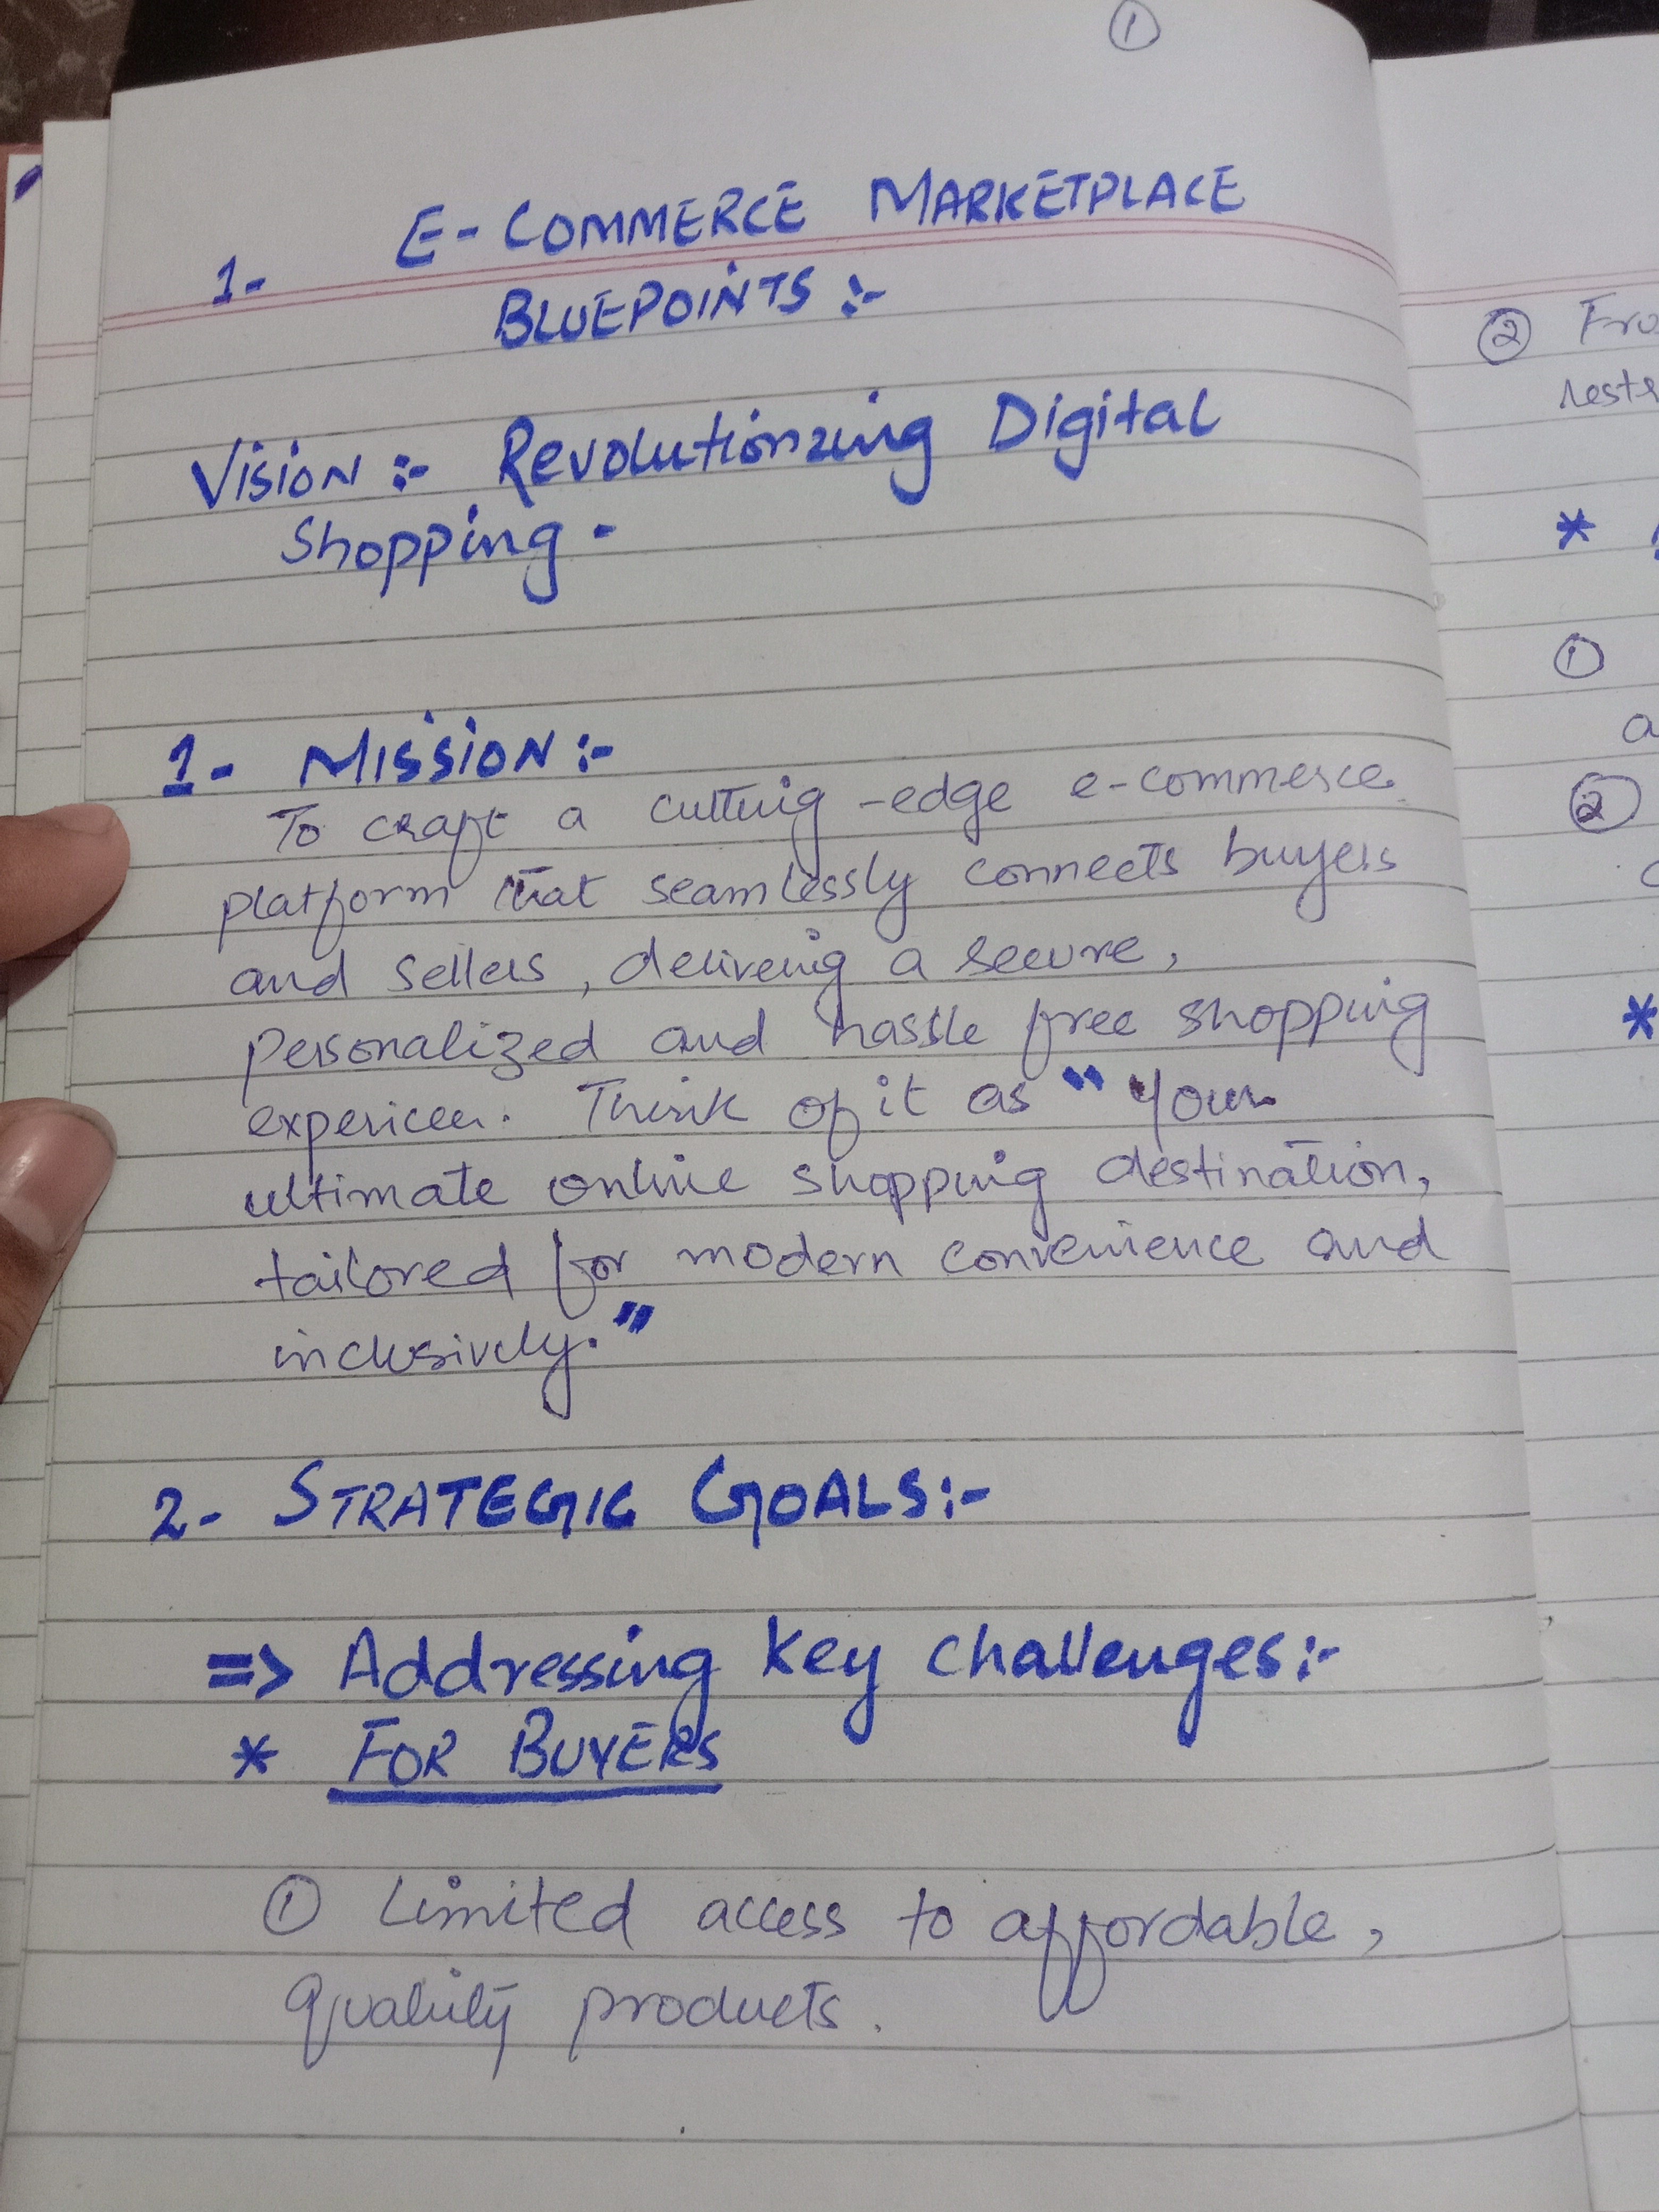 ①
E-COMMERCE MARKETPLACE
1-
BLUEPOINTS :-
Vision :- Revolutionzing Digital
Shopping.
1- MISSION :-
To craft a cutting-edge e-commerce
platform that seamlessly connects buyers
and sellers, delivering a secure,
personalized and hassle free shopping
expericen. Think of it as "Your
ultimate online shopping destination,
tailored for modern convenience and
inclusively."
2- STRATEGIC GOALS :-
=> Addressing key challenges :-
* FOR BUYERS
① Limited access to affordable,
quality products.
② Fro
*
①
a
②
*